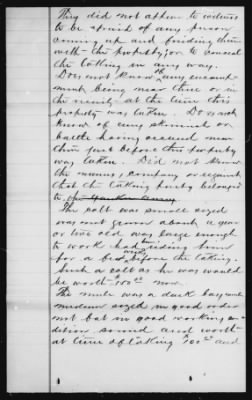 They did not appear to witness
to be afraid of any person
coming up and finding them
with the property, or to conceal
the taking in any way.
Does not know of any encamp-
ment being near there or in
the vicinity at the time this
property was taken. Does not
know of any skirmish or
battle having occurred near
there just before this property
was taken. Did not know
the names, company or regiment
that the taking party belonged
to the Yankee army
The colt was smooth sized
was not grown about a year
or two old was large enough
to work had been riding him
for a few weeks before the taking.
Such a colt as he was would
be worth 100.00 now.
The mule was a dark bay mule
medium sized in good order
not but in good working con-
dition sound and worth
at time of taking 100.00 and